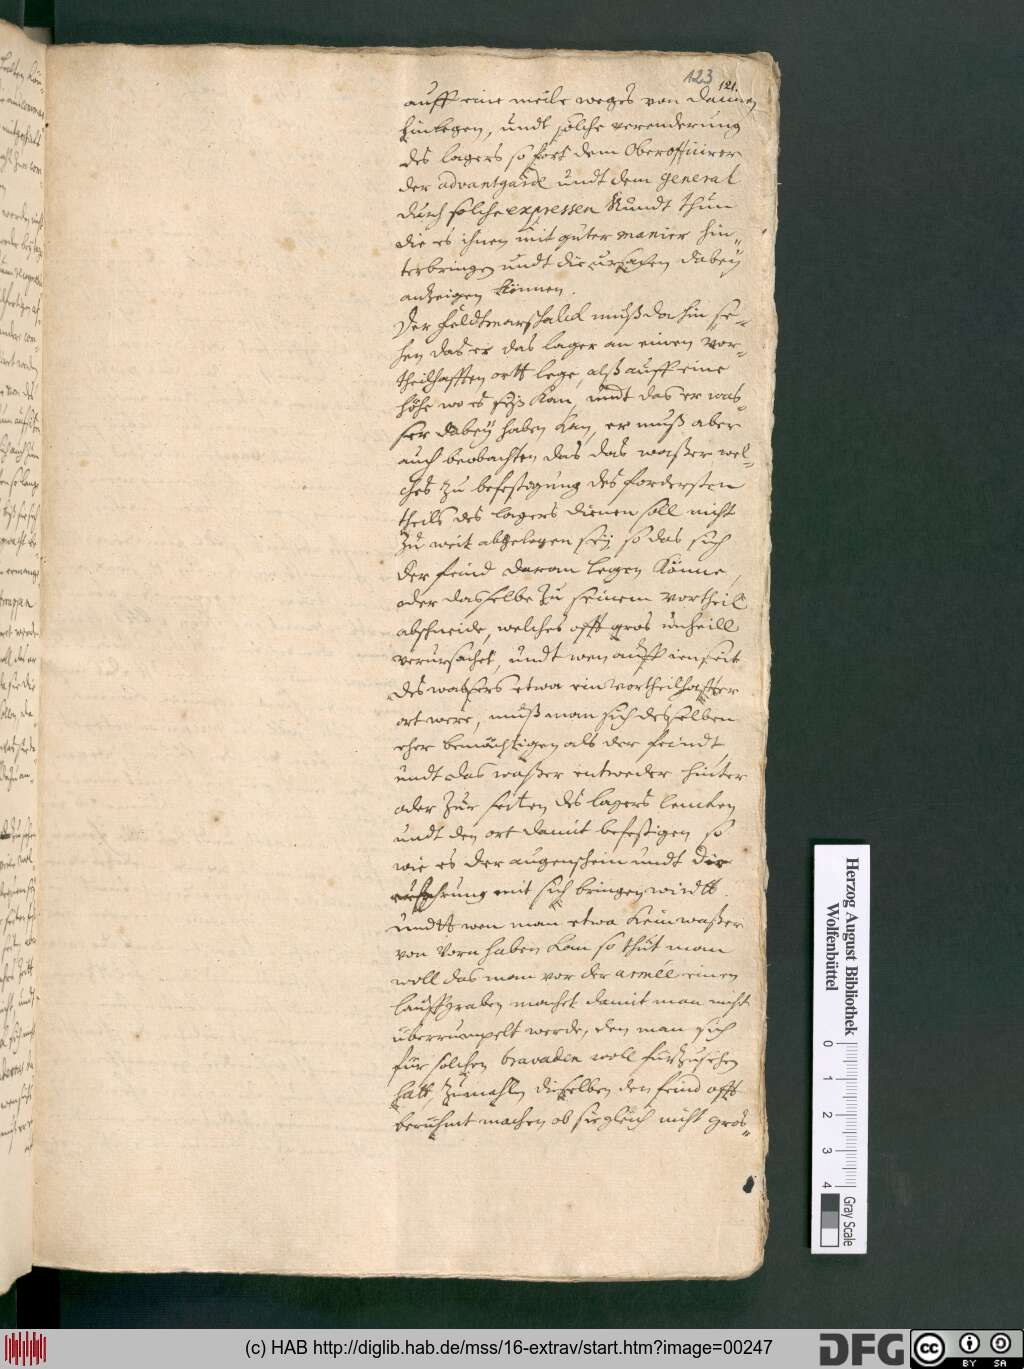 123 121.
auff eine meile weges von dannen
hinlegen, undt solche verenderung
des lagers so fort dem Oberofficirer
der advantgarde undt dem general
durch solche expressen Kundt thun
die es ihnen mit guter manier hin-
terbringen undt die ursachen dabeÿ
anzeigen können.
Der Feldtmarschalck muß da hin se-
hen das er das lager an einen vor-
theilhafften ortt lege, alß auff eine
höhe wo es seÿn kan, undt das er was-
ser dabeÿ haben kan, er muß aber
auch beobachten das das waßer wel-
ches zu befestigung des fordersten
theils des lagers dienen soll nicht
zu weit abgelegen seÿ so das sich
der feind daran legen könne,
oder dasselbe zu seinem vortheil
abschneide, welches offt gros unheill
verursachet, undt wen auff ienseit
des waßers etwa ein vortheilhaffter
ort were, muß man sich desselben
eher bemächtigen als der feindt
undt das waßer entweder hinter
oder zur seiten des lagers lencken
undt den ort damit befestigen so
wie es der augenschein undt die
erfahrung mit sich bringen wirdtt.
undtt wen man etwa kein waßer
von vorn haben kan so thut man
woll das man vor der armée einen
lauffgraben machet damit man nicht
überrumpelt werde, den man sich
für solchen bravaden woll fürzusehen
hatt, zumahln dieselben den feind offt
berühmt machen ob sie gleich nicht gros-
Herzog August Bibliothek
Wolfenbüttel
0 1 2 3 4
Gray Scale
(c) HAB http://diglib.hab.de/mss/16-extrav/start.htm?image=00247
DFG
cc BY SA